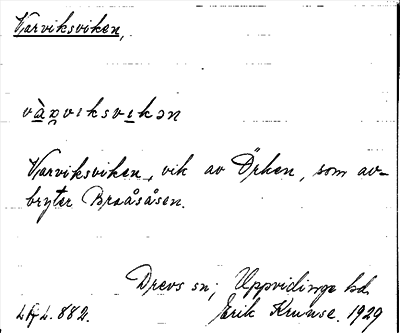 Varviksviken,
vàrviksvikən
Varviksviken, vik av Örken, som av-
bryter Braåsåsen.
Drevs sn; Uppvidinge hd.
Erik Kruuse. 1929